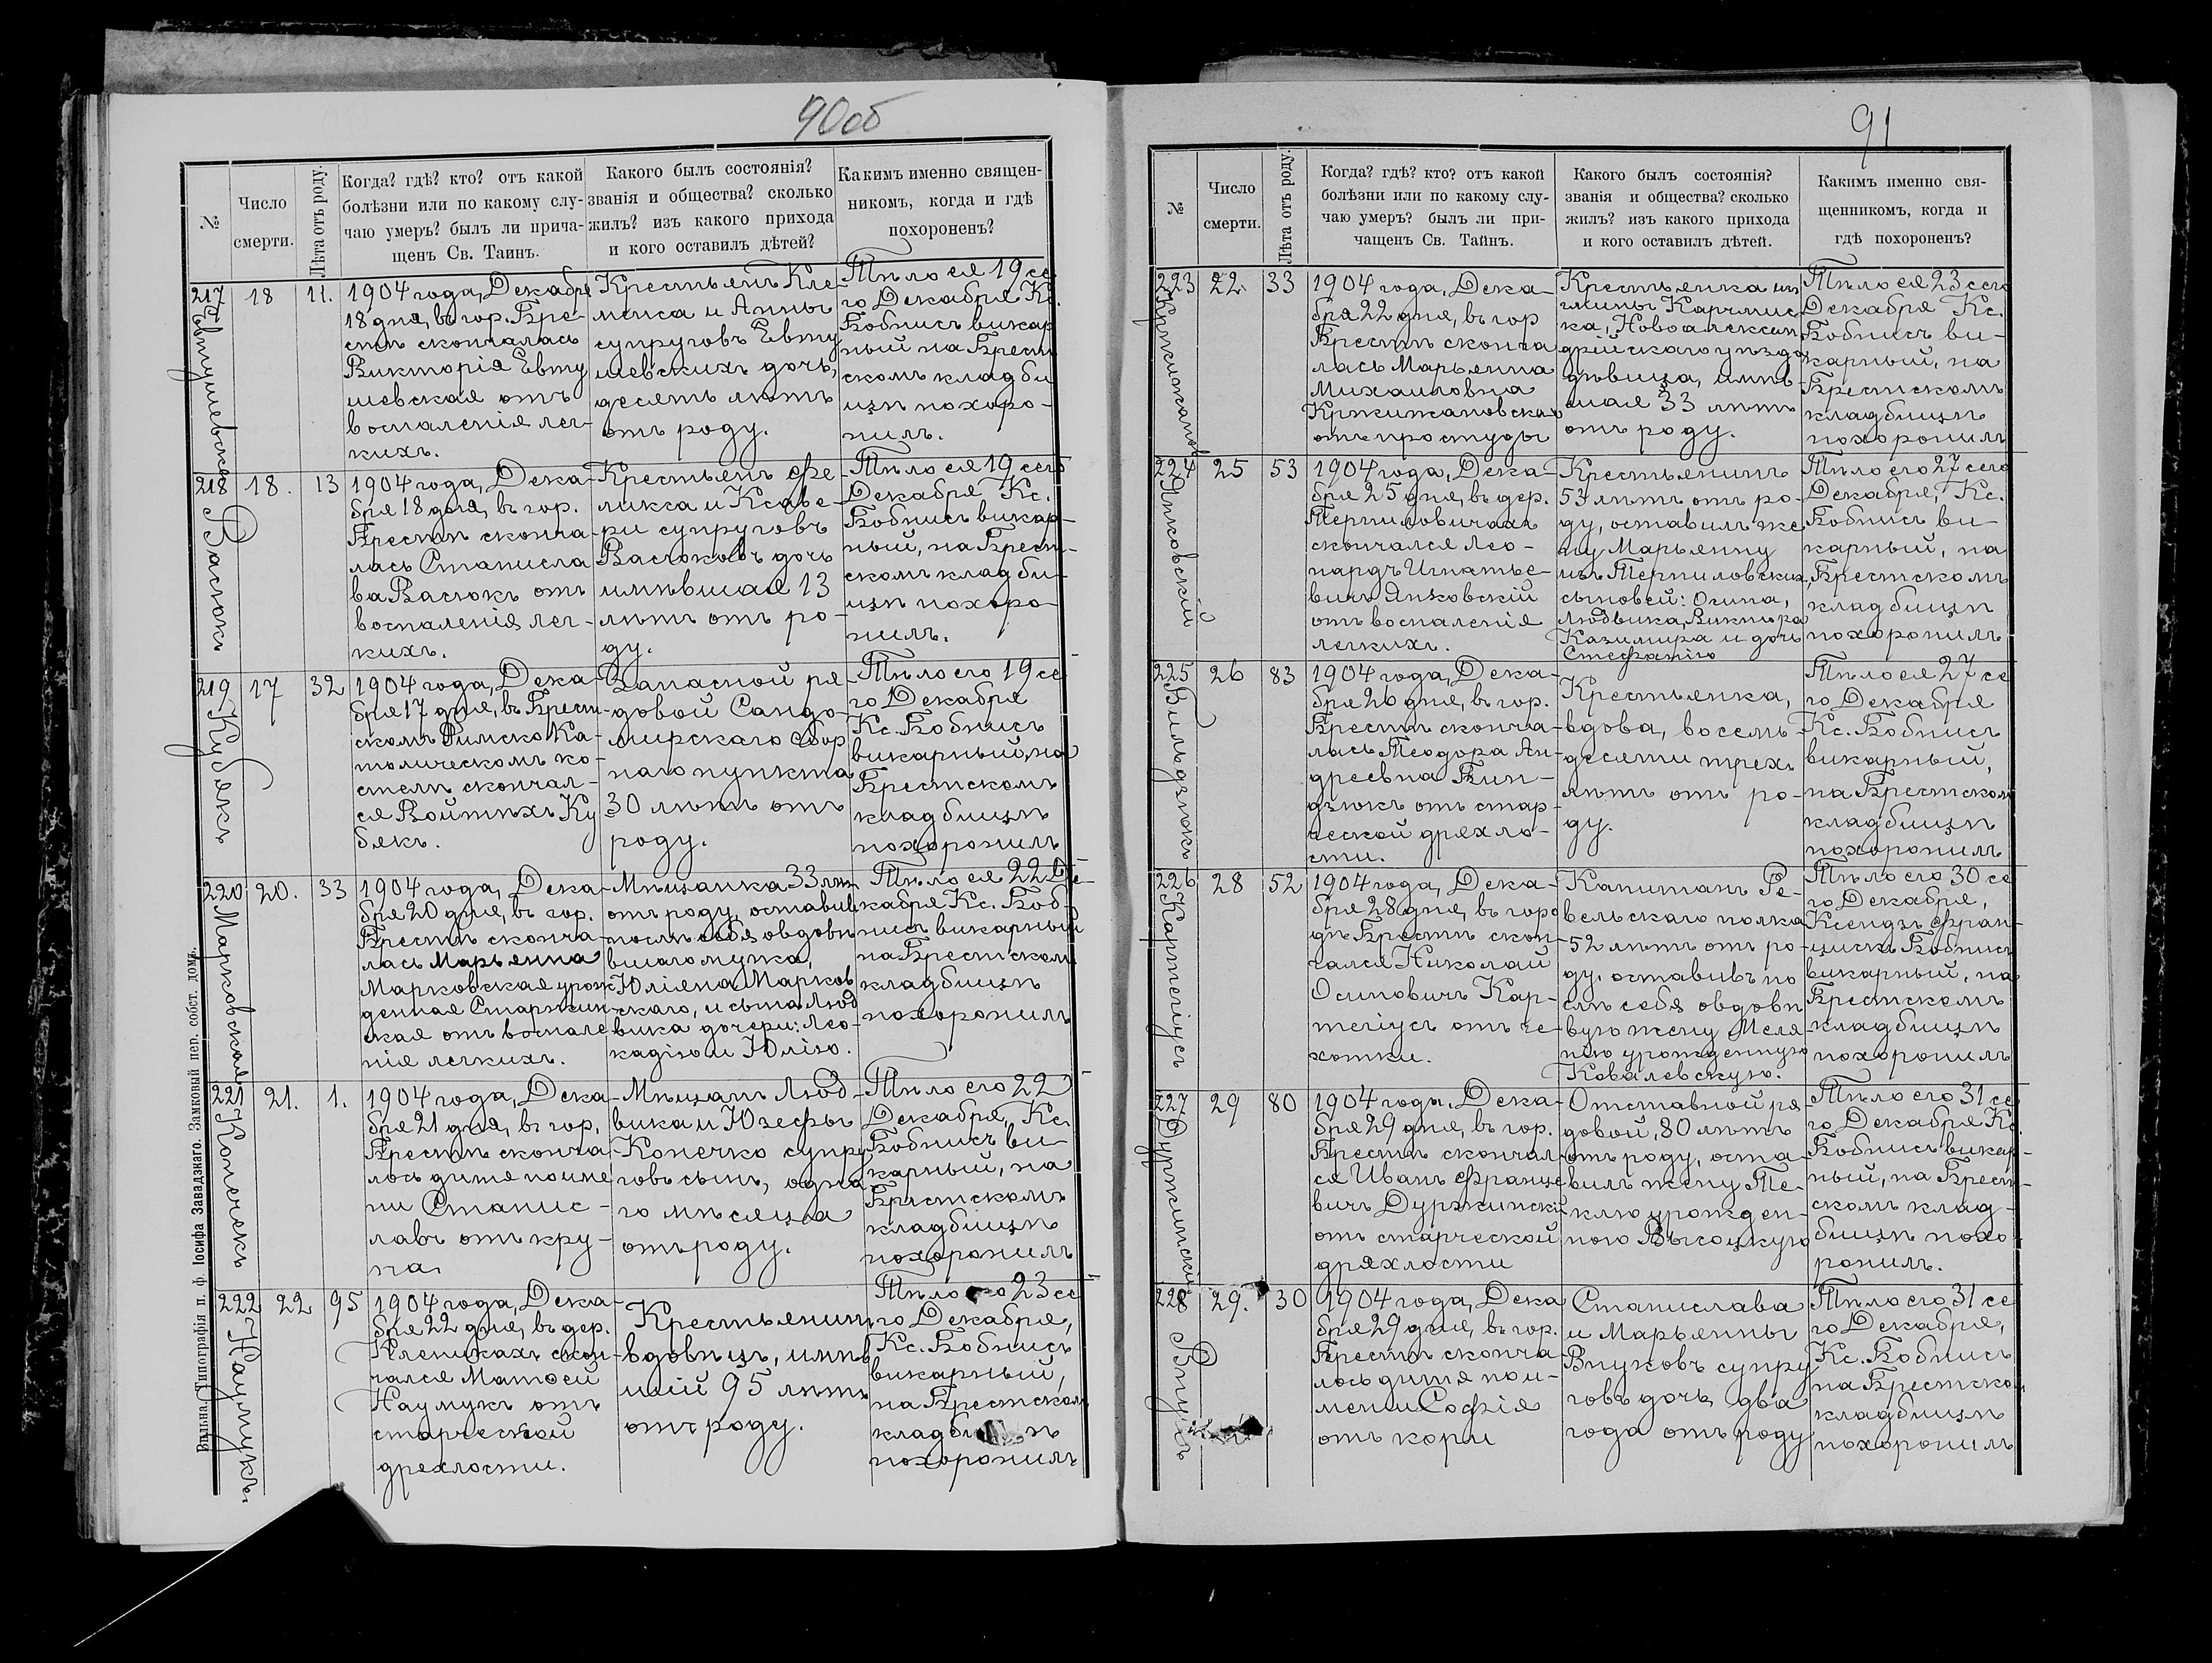 90об
№
Число
смерти.
Лѣта отъ роду.
Когда? гдѣ? кто? отъ какой
болѣзни или по какому слу-
чаю умеръ? былъ ли прича-
щенъ Св. Таинъ.
Какого былъ состоянія?
званія и общества? сколько
жилъ? изъ какого прихода
и кого оставилъ дѣтей?
Какимъ именно священ-
никомъ, когда и гдѣ
похороненъ?
217
18
11.
1904 года, Декабря
18 дня, въ гор. Бре-
стѣ скончалась
Викторія Евту
шевская отъ
воспаленія лег-
кихъ.
Крестьянъ Кле-
менса и Анны
супруговъ Евту
шевскихъ дочь,
десять лѣтъ
отъ роду.
Тѣло ея 19 се
го Декабря Кс.
Бобнисъ викар
ный на Брест
скомъ кладби
щѣ похоро-
нилъ.
218
Васюкъ
18.
13
1904 года, Дека-
бря 18 дня, въ гор.
Брестѣ сконча-
лась Станисла
ва Васюкъ отъ
воспаленія лег-
кихъ.
Крестьянъ Фе-
ликса и Ксаве-
ри супруговъ
Васюковъ дочь
имѣвшая 13
лѣтъ отъ ро-
ду.
Тѣло ея 19 сего
Декабря Кс.
Бобнисъ викар-
ный, на Брест-
скомъ кладби-
щѣ похоро-
нилъ.
219
Кубякъ
17
32
1904 года, Дека-
бря 17 дня, въ Брест-
скомъ Римско Ка-
толическомъ ко-
стелѣ скончал-
ся Войтѣхъ Ку
бякъ.
Запасной ря-
довой Сандо-
мирскаго сбор
наго пункта
30 лѣтъ отъ
роду.
Тѣло его 19 се
го Декабря
Кс. Бобнисъ
викарный, на
Брестскомъ
кладбищѣ
похоронилъ
220
Марковская
20.
33
1904 года, Дека-
бря 20 дня, въ гор.
Брестѣ сконча-
лась Марьянна
Марковская урож
денная Старжин-
ская отъ воспале
нія легкихъ.
Мѣщанка 33 лѣт
отъ роду, оставив
послѣ себя овдовѣ
вшаго мужа,
Юліяна Марков
скаго, и сына Люд
вика дочери: Лео-
кадію и Юлію.
Тѣло ея 22 Де-
кабря Кс. Боб-
нисъ викарный
на Брестскомъ
кладбищѣ
похоронилъ
221
Конечекъ
21.
1.
1904 года, Дека-
бря 21 дня, въ гор.
Брестѣ сконча
лось дитя по име
ни Станис-
лавъ отъ кру-
па.
Мѣщанъ Люд-
вика и Юзефы
Конечко супру
говъ сынъ, одна
го мѣсяца
отъ роду.
Тѣло его 22
Декабря, Кс.
Бобнисъ ви-
карный, на
Брестскомъ
кладбищѣ
похоронилъ
222
Наумукъ
22
95
1904 года, Дека-
бря 22 дня, въ дер.
Клепикахъ скон-
чался Матѳей
Наумукъ отъ
старческой
дрехлости.
Крестьянин
вдовецъ, имѣв
шій 95 лѣтъ
отъ роду.
Тѣло его 23 се
го Декабря,
Кс. Бобнисъ
викарный,
на Брестском
похоронилъ
Вильна. Типографія п. ф. Іосифа Завадзкаго. Замковый пер. собст. домъ.
91
№
Число
смерти.
Лѣта отъ роду.
Когда? гдѣ? кто? отъ какой
болѣзни или по какому слу-
чаю умеръ? былъ ли при-
чащенъ Св. Тайнъ.
Какого былъ состоянія?
званія и общества? сколько
жилъ? изъ какого прихода
и кого оставилъ дѣтей.
Какимъ именно свя-
щенникомъ, когда и
гдѣ похороненъ?
223
22
33
1904 года, Дека-
бря 22 дня, въ гор
Брестѣ сконча
лась Марьянна
Михаиловна
Кржижановская
отъ простуды
Крестьянка из
гмины Карчмис
ка, Новоалексан
дрійскаго уѣзда
дѣвица, имѣ-
вшая 33 лѣтъ
отъ роду.
Тѣло ея 23 сего
Декабря Кс.
Бобнисъ ви-
карный, на
Брестскомъ
кладбищѣ
похоронилъ
224
Янковскій
25
53
1904 года, Дека-
бря 25 дня, въ дер.
Терпиловичахъ
скончался Лео-
нардъ Игнатье-
вичъ Янковскій
отъ воспаленія
легкихъ.
Крестьянинъ
53 лѣтъ отъ ро-
ду, оставилъ же
ну Марьянну
изъ Терпиловскихъ,
сыновей: Осипа,
Людвика, Виктора
Казимира и дочь
Стефанію
Тѣло его 27 сего
Декабря, Кс.
Бобнисъ ви-
карный, на
Брестскомъ
кладбищѣ
похоронилъ
225
26
83
1904 года, Дека-
бря 26 дня, въ гор.
Брестѣ сконча-
лась Теодора Ан-
дреевна Вин-
дзюкъ отъ стар-
ческой дряхло-
сти.
Крестьянка,
вдова, восемь-
десяти трехъ
лѣтъ отъ ро-
ду.
Тѣло ея 27 се
го Декабря
Кс. Бобнисъ
викарный,
на Брестском
кладбищѣ
похоронилъ
226
Карпегіусъ
28
52
1904 года, Дека-
бря 28 дня, въ горо
дѣ Брестѣ скон-
чался Николай
Осиповичъ Кар-
пегіусъ отъ че-
хотки.
Капитанъ Ре-
вельскаго полка
52 лѣтъ отъ ро-
ду, оставивъ по
слѣ себя овдовѣ
вую жену Меля-
нію урожденную
Ковалевскую.
Тѣло его 30 се
го Декабря,
Ксендзъ Фран-
цискъ Бобнисъ
викарный, на
Брестскомъ
кладбищѣ
похоронилъ
227
29
80
1904 года, Дека-
бря 29 дня, въ гор.
Брестѣ скончал-
ся Иванъ Францe
вичъ Дуржинскі
отъ старческой
дряхлости
Отставной ря-
довой, 80 лѣтъ
отъ роду, оста-
вилъ жену Те-
клю урожден-
ною Высоцкую
Тѣло его 31 се
го Декабря Кс.
Бобнисъ викар-
ный, на Брест-
скомъ клад-
бищѣ похо
ронилъ.
228
Внукъ
29.
30
1904 года, Дека
бря 29 дня, въ гор.
Брестѣ сконча
лось дитя по и-
мени Софія
отъ кори
Станислава
и Марьянны
Внуковъ супру
говъ дочь два
года отъ роду
Тѣло его 31 се
го Декабря,
Кс. Бобнисъ
на Брестско
кладбищѣ
похоронилъ